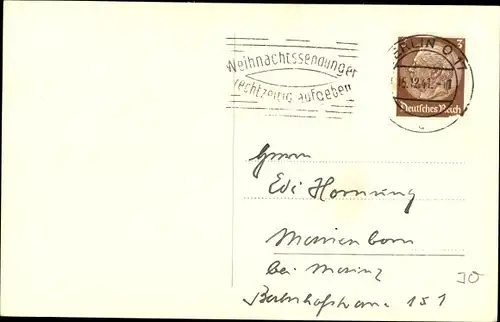 Weihnachtssendungen
rechtzeitig aufgeben
BERLIN O 17
12.41
3
Deutsches Reich
Herrn
Edi Hornung
Marienborn
bei Mainz
Bahnhofstrasse 151
30